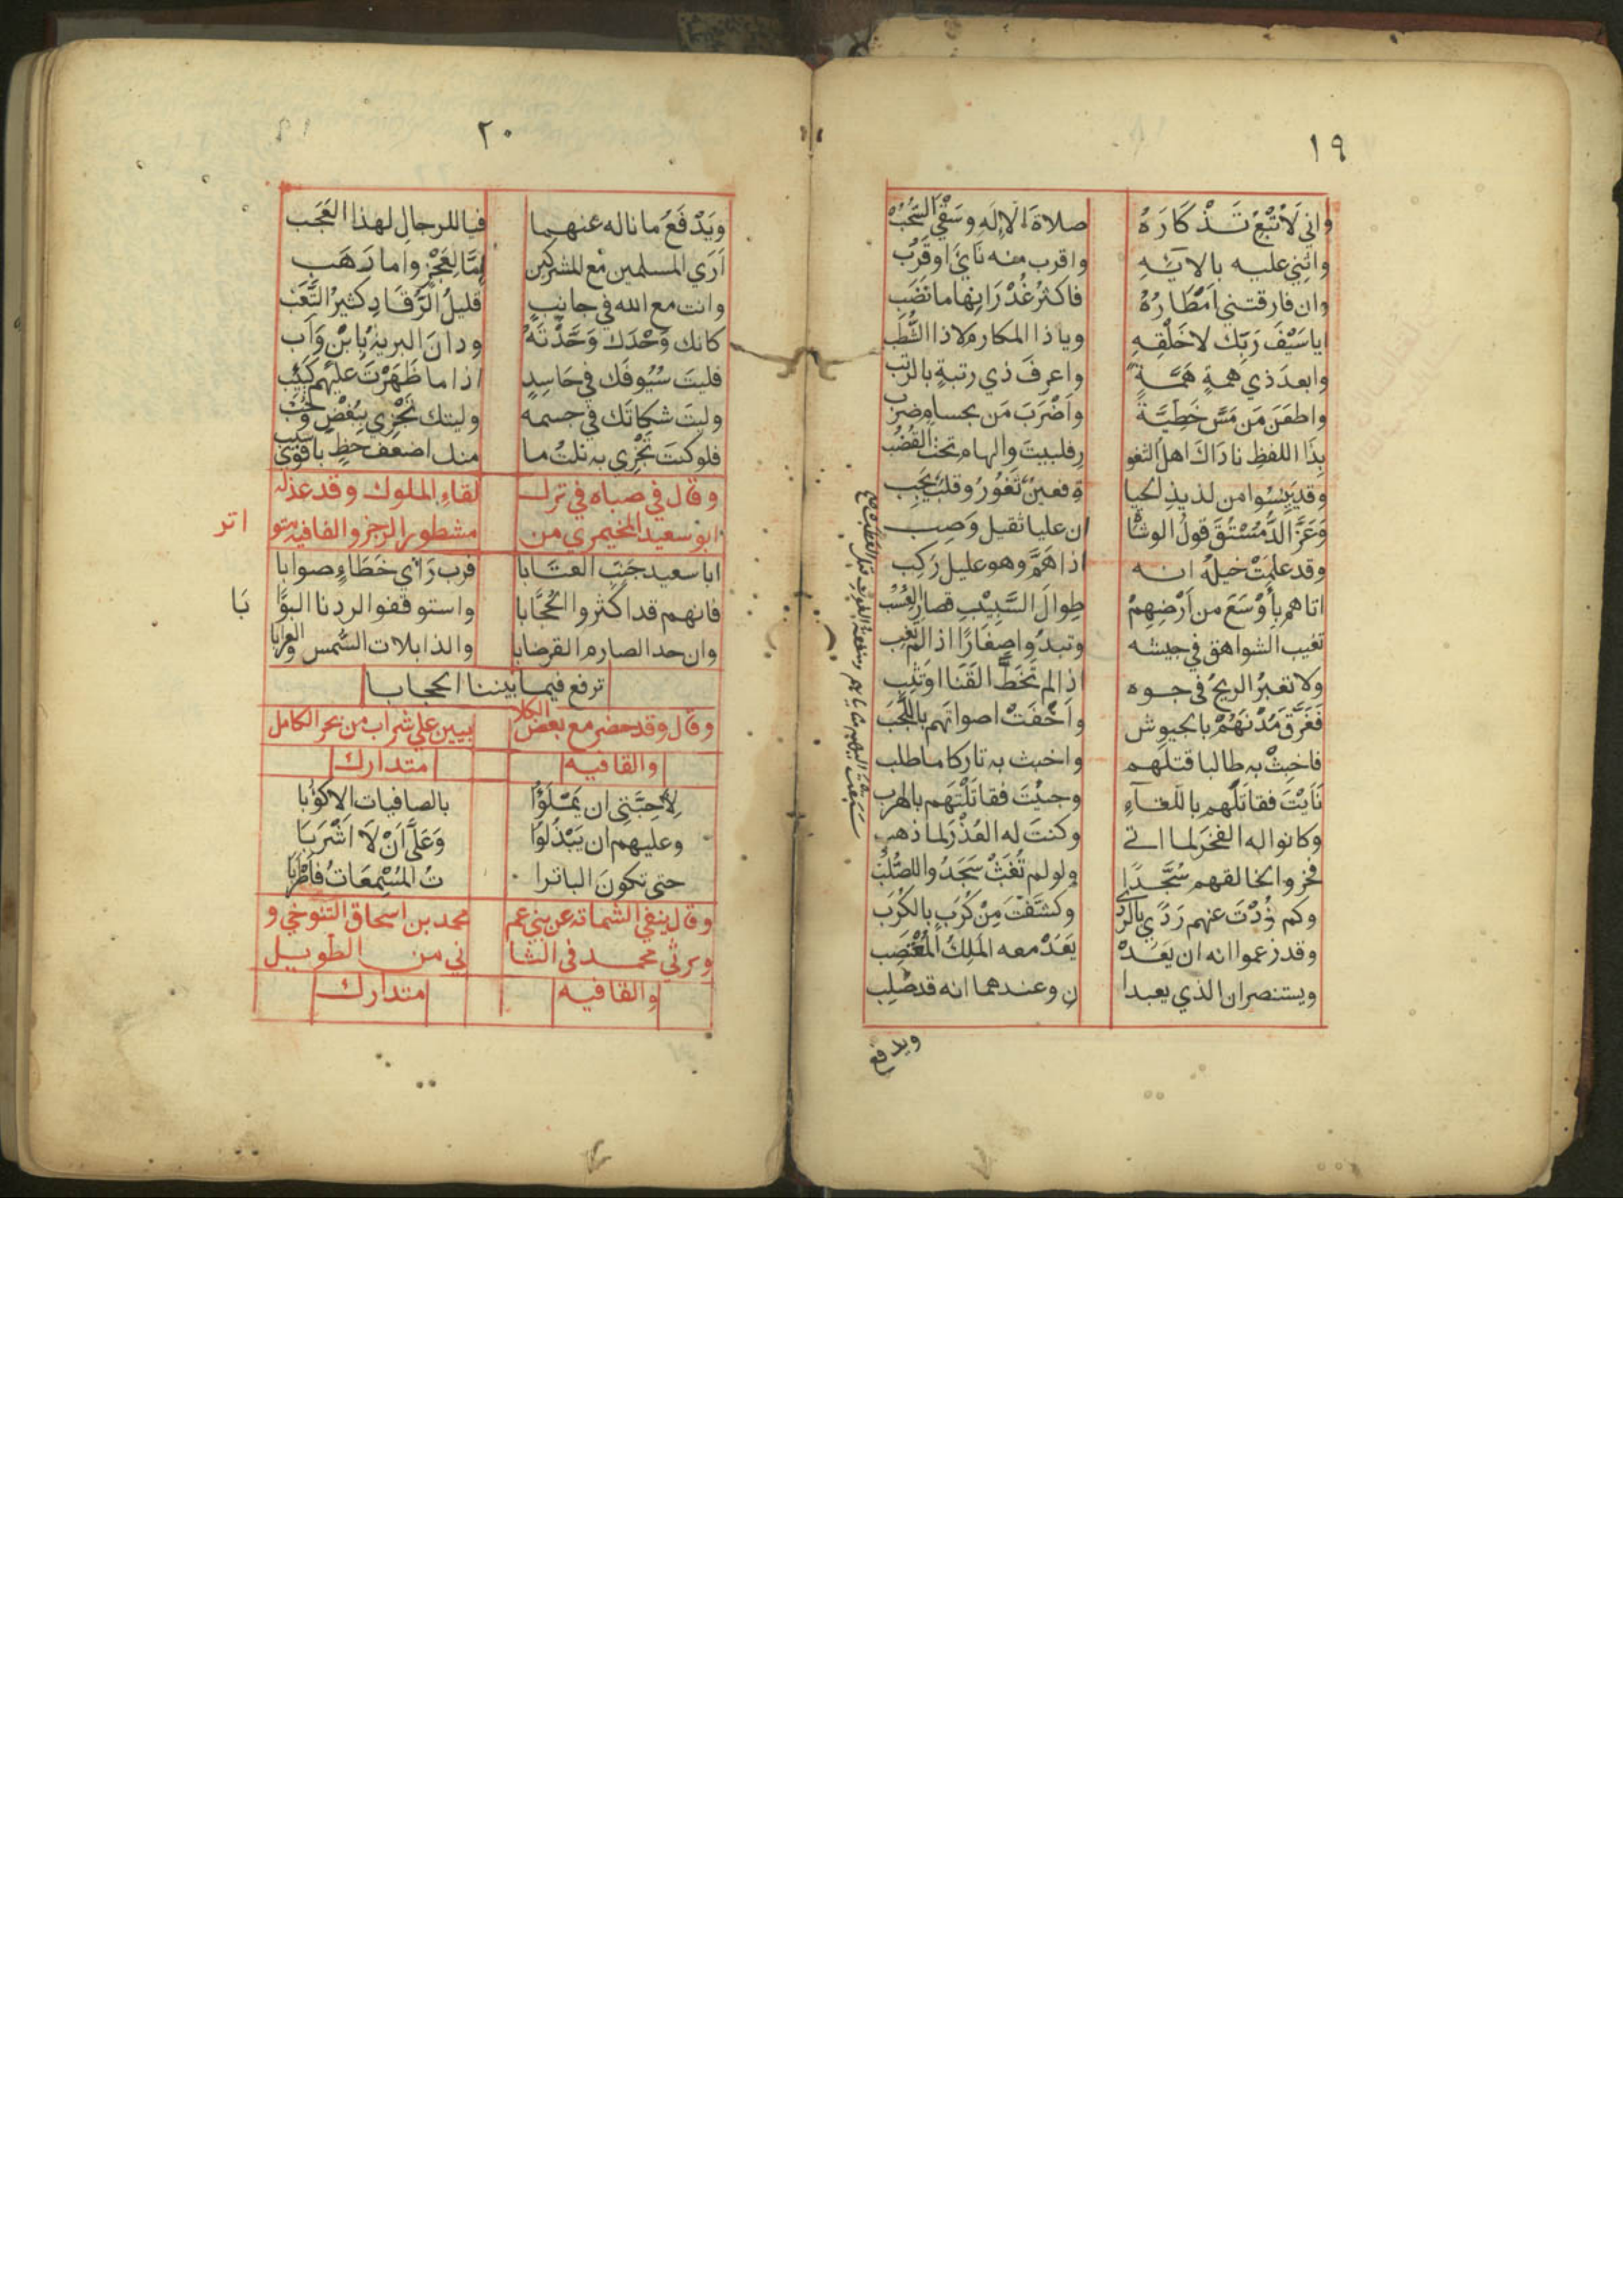 ١٩
واني لأتبع تَذْكَارَهُ صلاةَ الاله وسَقْيَ السُّحُبْ
واثني عليه بالائه واقرب منه نَايَ اوقَرُب
وان فارقتني اَمْطَارُهُ فاكثرُ غُدْرَانِها ما نَضَب
اياسَيْفَ رَبِّك لاخَلْقِهِ وياذا المكارم لاذا الشُّطَب
وابعدَ ذي هِمةٍ هِمَّةً واعرفَ ذي رتبةٍ بالرتب
واطعَنَ مَن مَسَّ خَطِيَّةً واَضْرَبَ مَن بحسامٍ ضرب
بِذَا اللفظِ نادَاكَ اهلُ الثغو رِ فلبيتَ والهام تحت القُضُب
وقد يَئِسُوا من لذيذِ الحيا ةِ فعينٌ تَغُورُ وقلبٌ يَجِب
وَعَزَّ الدُّمُسْتُقَ قولُ الوشا ان عليا ثقيل وَصِب
وقد علِمَتْ خيلُه انه اذا هَمَّ وهو عليل رَكِب
اتاهم بِأَوْسَعَ من اَرْضِهِمْ طِوالَ السَّبِيْبِ قصارَ العُسُب
تغيب الشواهق في جيشه وتبدُو اصِغَارًا اذا لم تَغِب
ولا تعبرُ الريحُ في جوه اذا لم تَخَطَّ القَنَا اوَتَثِب
فَغَرَّقَ مُدْنَهُمُ بالجيوش واَخْفَتْ اصواتَهم باللَّجَب
فاخبِثْ به طالبا قتلَهم واخبث به تاركا ما طلب
نَأَيْتَ فقاتَلَهم باللقاءِ وجئتَ فقاتَلْتَهم بالهرب
وكانوا له الفخرَ لما اتى وكنتَ له العُذْرَ لما ذهب
فخروا لخالقهم سُجَّدًا ولو لم تُغَثْ سَجَدُوا للصُّلُب
وكم ذُدْتَ عنهم رَدًي بالردى وكشَّفْتَ مِنْ كُرَبٍ بالكُرَب
وقد زعموا انه ان يَعُدْ يَعُدْ معه المَلِكُ المُعْتَصِب
ويستنصران الذي يعبدا نِ وعندهما انه قد صُلِب
ويدفع
٢٠
ويَدْفَعُ ما ناله عنهما فيا للرجال لهذا العَجَب
اَرَي المسلمين مع المشركين اِمَّا لِعَجْزٍ واما رَهَب
وانت مع الله في جانبٍ قليلُ الرُّقَادِ كثيرُ التَّعَب
كانك وَحْدَك وَحَّدْتَهُ ودانَ البرية بِابْنٍ وَاَب
فليتَ سُيُوفَك في حَاسِدٍ اذا ما ظَهَرْتَ عليهم كَئِب
وليتَ شكاتَك في جسمه وليتك تَجْزِي بِبُغْضٍ وحُبْ
فلو كنتَ تَجْزِي به نلتُ ما منك اضعفَ حظٍ باقوى سبب
وقال في صباه في ترك لقاءِ الملوك وقد عذله
ابو سعيد المخيمري من مشطور الرجز والقافيه متو
اتر
ابا سعيد جَنِّبِ العتابا فرب رَأيٍ خَطَاءٍ صوابا
فانهم قد اكثروا الحُجَّابا واستوقفوا لردنا البوَّا
بَا
وان حد الصارم القرضابا والذابلات السُّمس والعرابا
ترفع فيما بيننا الحجابا
وقال وقد حضر مع بعض الكلا بيين علي شراب من بحر الكامل
والقافيه متدارك
لِأَحِبَّتِي ان يَمْلَؤُا بالصافيات الاكؤُبا
وعليهم ان يَبْذُلُوا وَعَلَيَّ اَنْ لَا اَشْرَبَا
حتى تكونَ الباترا تُ المُسْمِعَاتُ فاَطْرَبَا
وقال ينفي الشماته عن بني عم محمد بن اسحاق التنوخي و
ويرثي محمد في الثا ني من الطويل
والقافيه متدارك